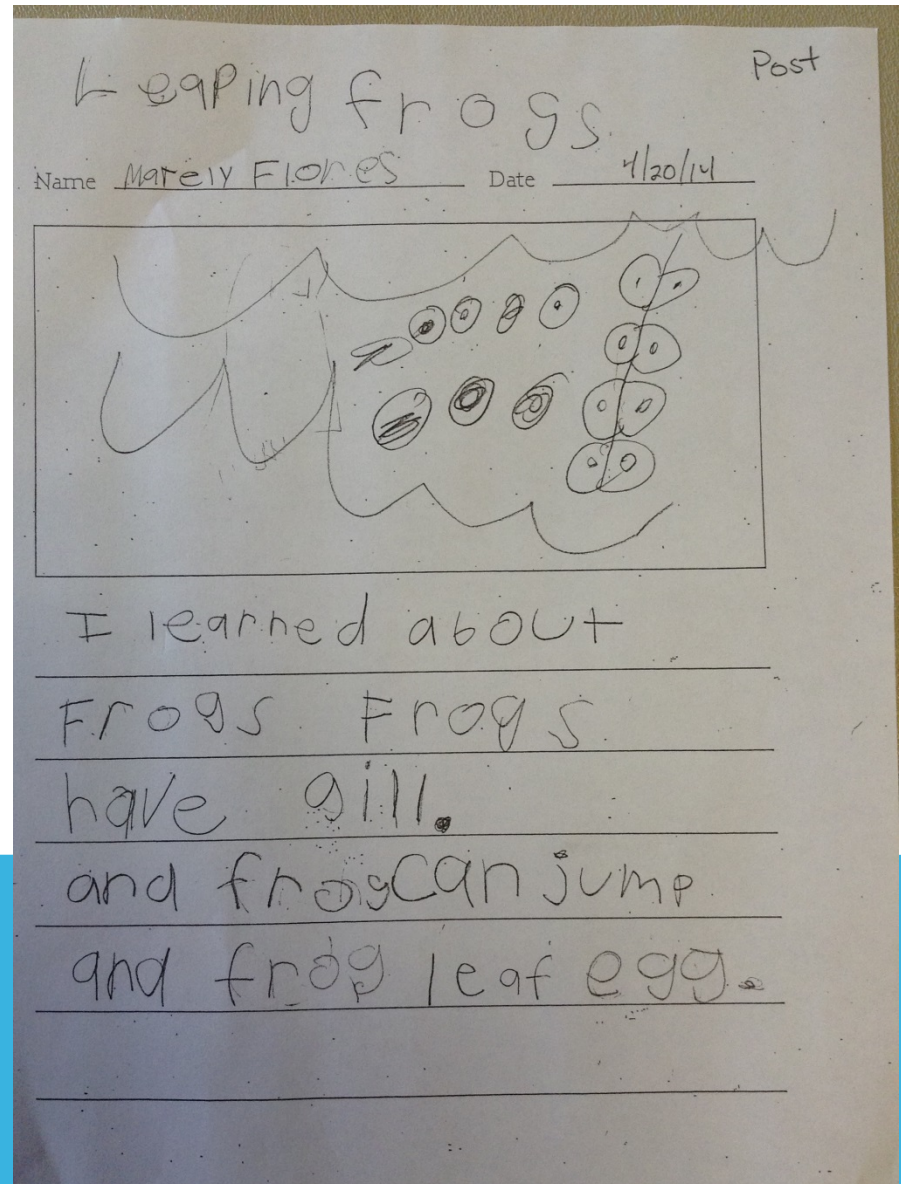 Post
Leaping frogs
Name Marely Flores Date 4/20/14
I learned about
Frogs. Frogs
have gill.
and frog can jump
and frog leaf egg.